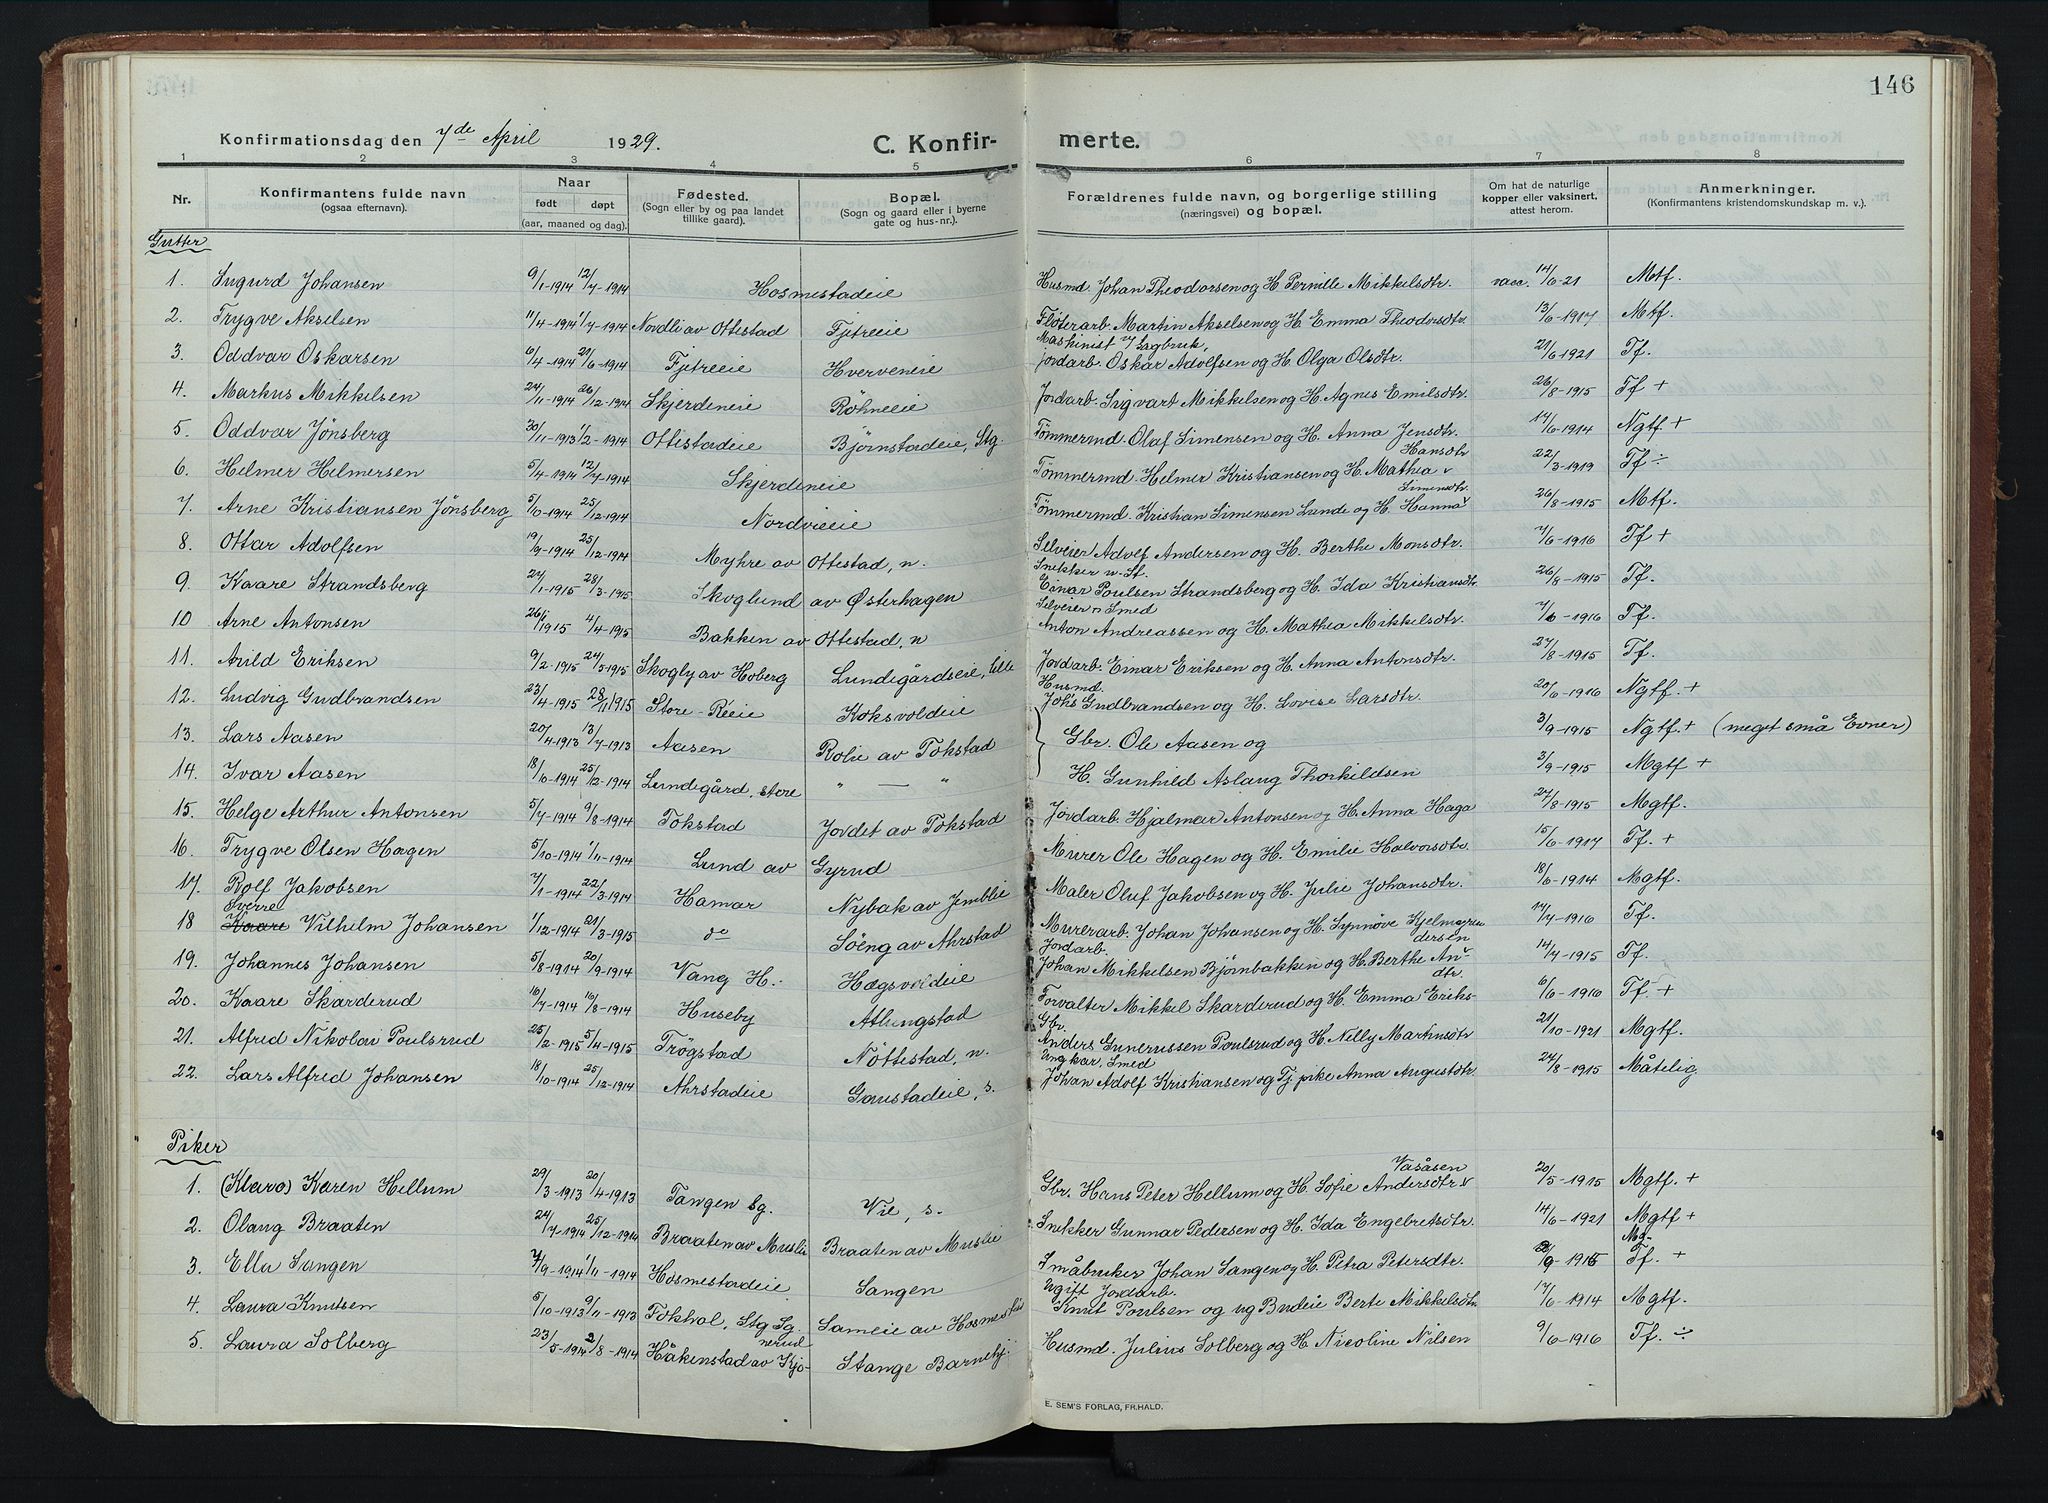 146
Konfirmationsdag den 7de April 1929.
C. Konfirmerte.
1 2 3 4 5 6 7 8
Nr. Konfirmantens fulde navn (ogsaa efternavn). Naar født døpt (aar, maaned og dag). Fødested. (Sogn eller by og paa landet tillike gaard). Bopæl. (Sogn og gaard eller i byerne gate og hus-nr.). Forældrenes fulde navn, og borgerlige stilling (næringsvei) og bopæl. Om hat de naturlige kopper eller vaksinert, attest herom. Anmerkninger. (Konfirmantens kristendomskundskap m. v.).
Gutter
1. Sugurd Johansen 9/1-1914 12/4-1914 Hosmestadeie Husmd. Johan Theodorsen og H. Pernille Mikkelsdtr. vacc. 14/6-21 Mtf.
2. Trygve Akselsen 11/4-1914 1/7-1914 Nordli av Ottestad Fjetreeie Fløterarb. Martin Akselsen og H. Emma Theodorsdtr. 13/6-1917 Mtf.
3. Oddvar Oskarsen 6/4-1914 21/6-1914 Fjetreeie Hverveneie Maskinist v/ Sagbruk, Jordarb. Oskar Adolfsen og H. Olga Olsdtr. 21/6 1921 Tf.
4. Markus Mikkelsen 24/11-1914 26/12-1914 Skjerdeneie Röhneeie Jordarb. Sigvart Mikkelsen og H. Agnes Emilsdtr. 26/8-1915 Tf +
5. Oddvar Jønsberg 30/11-1913 1/2-1914 Ottestadeie Bjørnstadeie, Stg. Tømmermd. Olaf Simensen og H. Anna Jensdtr. 17/6-1914 Ngtf +
6. Helmer Helmersen 5/4-1914 12/7-1914 Skjerdeneie Tømmermd. Helmer Kristiansen og H. Mathea Hansdtr 22/3-1919 Tf ÷
7. Arne Kristiansen Jønsberg 5/10-1914 25/12-1914 Nordvieie Tømmermd. Kristian Simensen Lunde og H. Hanna Simensdtr. 26/8-1915 Mtf.
8. Ottar Adolfsen 19/9-1914 25/12-1914 Myhre av Ottestad, n. Selveier Adolf Andersen og H. Berthe Monsdtr. 7/6-1916 Tf +
9. Kaare Strandsberg 27/1-1915 28/3-1915 Skoglund av Østerhagen Snekker n. St. Einar Poulsen Strandsberg og H. Ida Kristiansdtr. 26/8-1915 Tf.
10 Arne Antonsen 26/1 1915 4/4-1915 Bakken av Ottestad, n Selveier n Smed Anton Andreassen og H. Mathea Mikkelsdtr. 7/6-1916 Tf.
11. Arild Eriksen 9/2-1915 24/5-1915 Skogly av Hoberg Lundegårdseie, lille Jordarb. Einar Eriksen og H. Anna Antonsdtr. 27/8-1915 Tf.
12. Ludvig Gudbrandsen 23/4-1915 28/11 1915 Store-Reeie Koksvoldeie Husmd. Johs Gudbrandsen og H. Lovise Larsdtr. 20/6-1916 Ngtf. +
13. Lars Aasen 20/4-1913 13/7-1913 Aasen Rolie av Tokstad Gbr. Ole Aasen og 3/9-1915 Ngtf. + (meget små Evner)
14. Ivar Aasen 18/10-1914 25/12-1914 Lundegård, store " — " H. Gunhild Aslaug Thorkildsen 3/9-1915 Mgtf +
15. Helge Arthur Antonsen 5/7-1914 9/8-1914 Tokstad Jordet av Tokstad Jordarb. Hjalmar Antonsen og H. Anna Haga 27/8-1915 Mgtf.
16. Trygve Olsen Hagen 5/10-1914 1/11-1914 Lund av Gyrud Murer Ole Hagen og H. Emilie Halvorsdtr. 15/6-1917 Tf. +
17. Rolf Jakobsen 7/1-1914 22/3-1914 Hamar Nybak av Jemblie Maler Oluf Jakobsen og H. Julie Johansdtr. 18/6-1914 Mgtf.
18 Sverre Kaare Vilhelm Johansen 1/12-1914 21/3-1915 do Söeng av Ahrstad Murerarb. Johan Johansen og H. Synnöve 14/7-1916 Tf.
19. Johannes Johansen 5/8-1914 20/9-1914 Vang H. Hægsvoldeie Jordarb. Johan Mikkelsen Bjørnbakken og H. Berthe Andersen 14/7-1915 Tf.
20. Kaare Skarderud 16/7-1914 16/8-1914 Huseby Atlungstad Forvalter Mikkel Skarderud og H. Emma Eriksdtr. 6/6-1916 Tf. +
21. Alfred Nikolai Poulsrud 25/2-1915 5/4-1915 Trøgstad Nöttestad, n. Gbr. Anders Gunerussen Poulsrud og H. Nelly Markusdtr 21/10-1921 Mgtf.
22. Lars Alfred Johansen 18/10-1914 25/12-1914 Ahrstadeie Gaustadeie, s. Ungkar, Smed Johan Adolf Kristiansen og Tj. pike Anna Augustdtr. 24/8-1915 Måtelig
Piker
1. (Klara) Karen Hellum 29/3-1913 20/4-1913 Tangen Sg. Vie, s. Gbr. Hans Peter Hellum og H. Sofie Andersdtr. Vasåsen 20/5-1915 Mgtf. +
2. Olaug Braaten 24/7-1914 25/12-1914 Braaten av Muslie Braaten av Muslie Snekker Gunnar Pedersen og H. Ida Engebretsdtr. 14/6-1921 Mgtf +
3. Ella Sangen 7/9-1914 1/11-1914 Hosmestadeie Sangen Småbruker Johan Sangen og H. Petra Petersdtr. /9-1915 Mg. Tf. +
4. Laura Knutsen 5/10-1913 9/11-1913 Fokhol, Stg Sg. Sameie av Hosmestad Ugift Jordarb. Knut Poulsen og ug Budeie Berte Mikkelsdtr 17/6-1914 Mgtf.
5. Laura Solberg 23/5-1914 2/8-1914 Håkenstad av Kjonerud Stange Barnehj. Husmd. Julius Solberg og H. Nicoline Nilsen 9/6-1916 Tf. ÷
E. SEM'S FORLAG, FR.HALD.